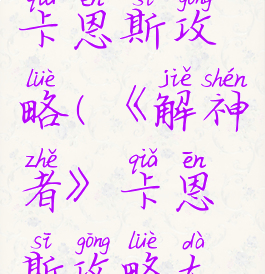 qiǎ ēn sī gōng
卡恩斯攻
lüè jiě shén
略(《解神
zhě qiǎ ēn
者》卡恩
sī gōng lüè dà
斯攻略大